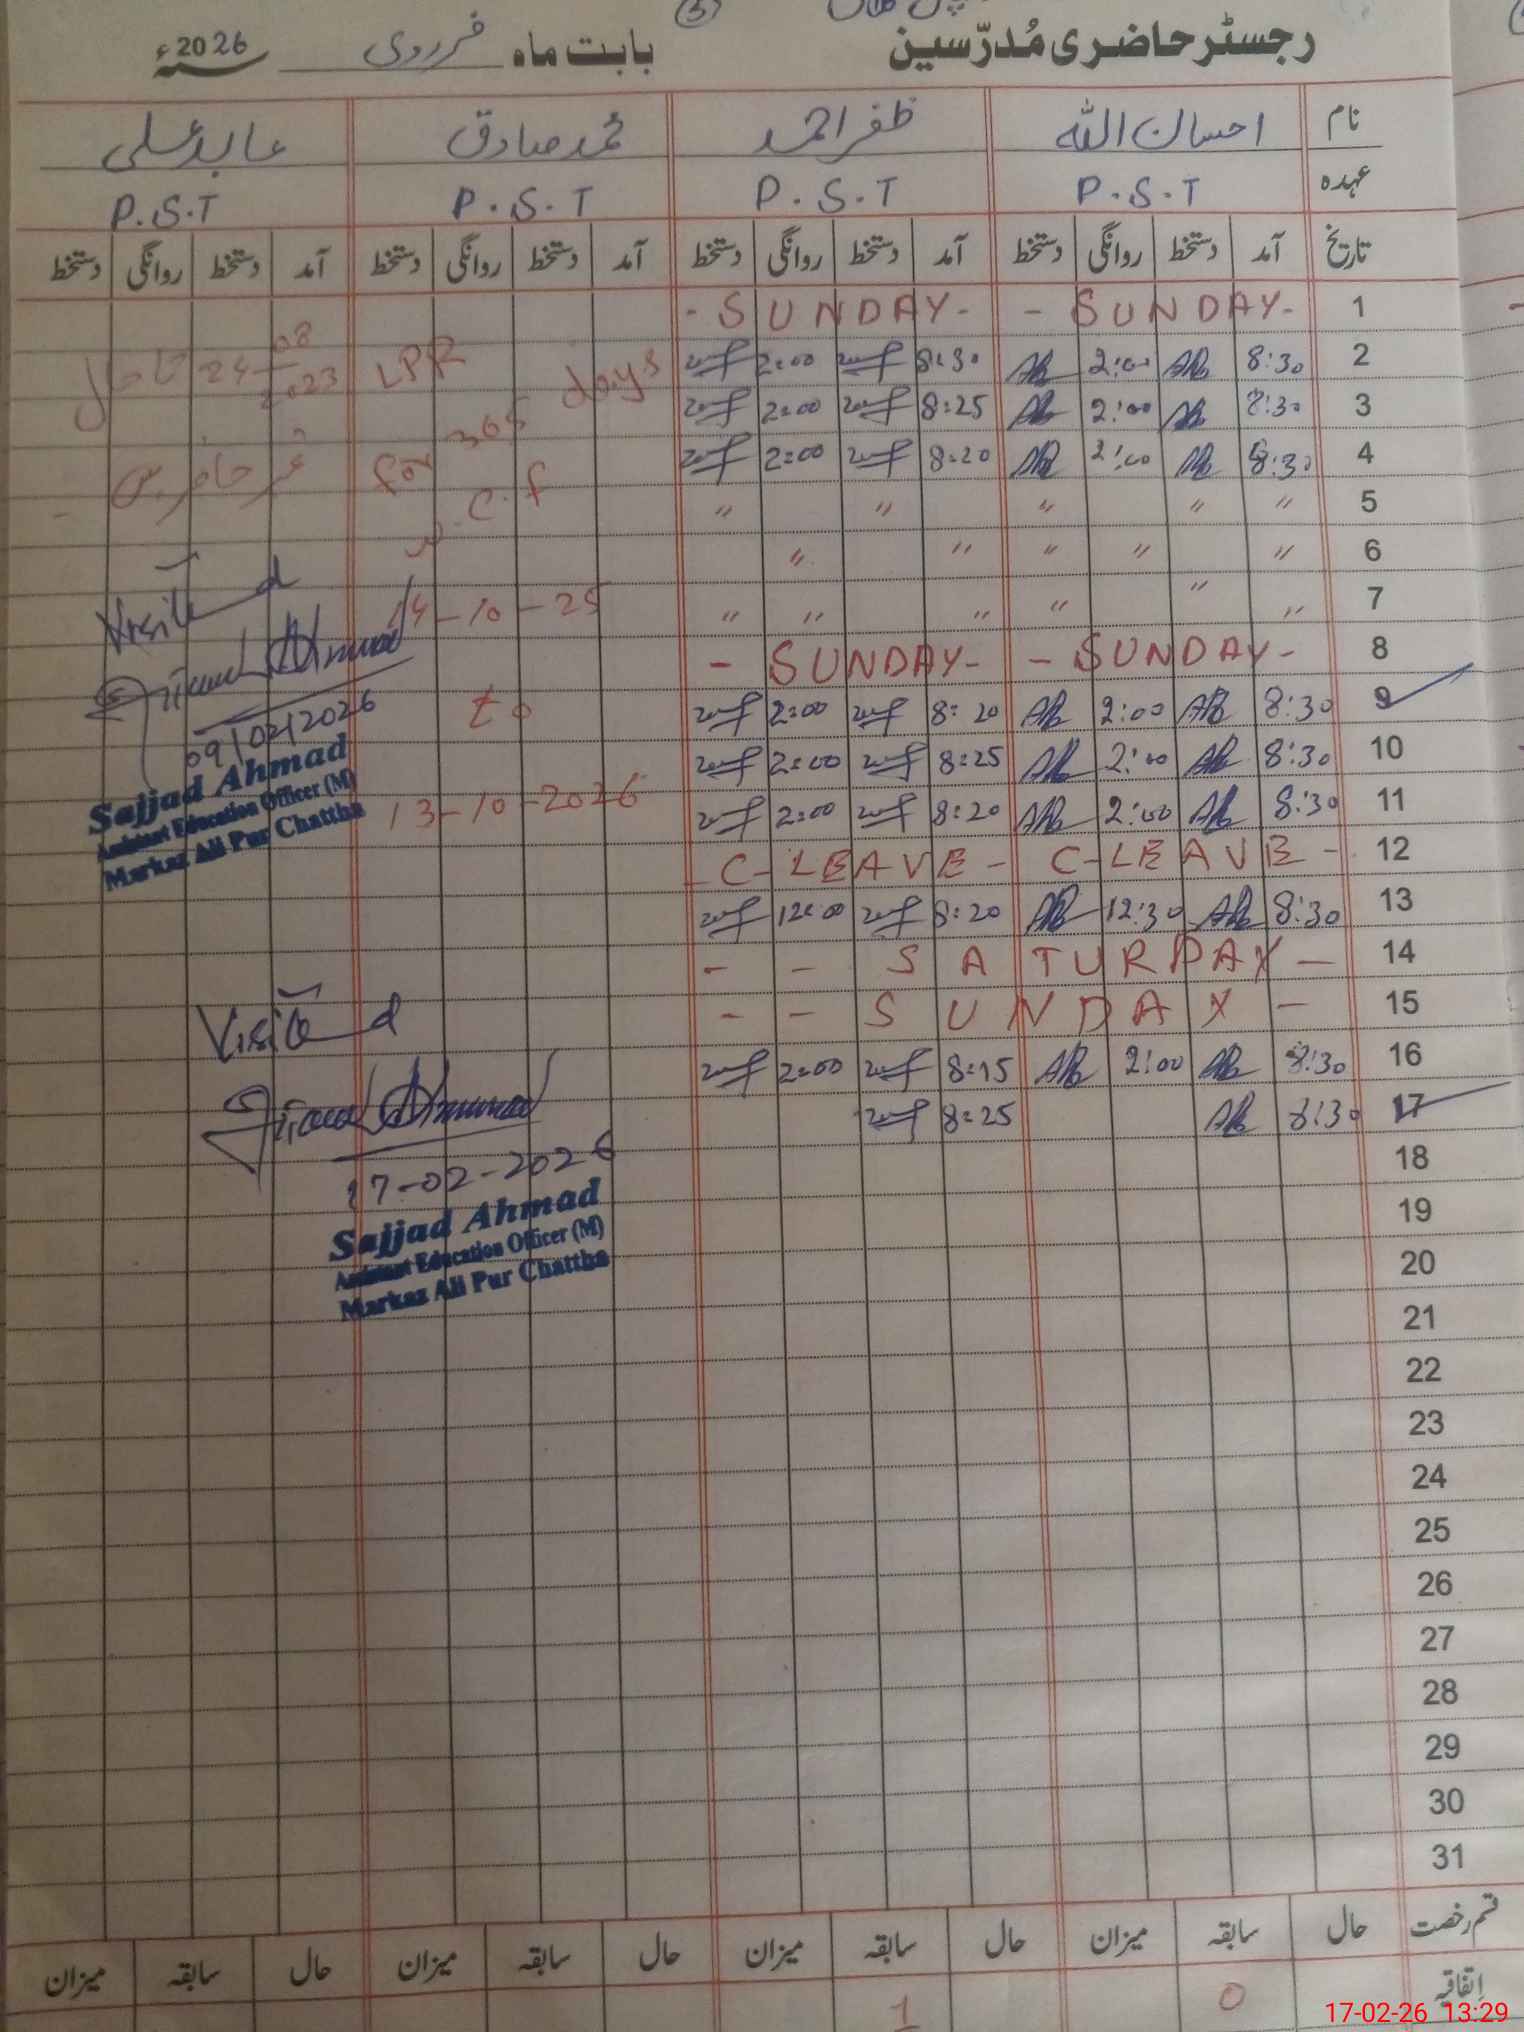 رجسٹر حاضری مُدرّسین بابت ماہ فروری 2026ء
نام احسان اللہ ظفر احمد محمد صادق عابد علی
عہدہ P.S.T P.S.T P.S.T P.S.T
تاریخ آمد دستخط روانگی دستخط آمد دستخط روانگی دستخط آمد دستخط روانگی دستخط آمد دستخط روانگی دستخط
1 - SUNDAY - - SUNDAY -
2 8:30 2:00 8:30 2:00
3 8:30 2:00 8:25 2:00
4 8:30 2:00 8:20 2:00
5 〃 〃 〃 〃 〃
6 〃 〃 〃 〃 〃
7 〃 〃 〃 〃 〃 〃
8 - SUNDAY - - SUNDAY -
9 8:30 2:00 8:20 2:00
10 8:30 2:00 8:25 2:00
11 8:30 2:00 8:20 2:00
12 C-LEAVE - C-LEAVE -
13 8:30 12:30 8:20 12:00
14 - - SATURDAY -
15 - - SUNDAY -
16 8:30 2:00 8:15 2:00
17 8:30 8:25
18
19
20
21
22
23
24
25
26
27
28
29
30
31
LPR
for 365 days
w.e.f
14-10-25
to
13-10-2026
24-08-2023 تا حال
غیر حاضر
Visited
09/02/2026
Sajjad Ahmad
Assistant Education Officer (M)
Markaz Ali Pur Chattha
Visited
17-02-2026
Sajjad Ahmad
Assistant Education Officer (M)
Markaz Ali Pur Chattha
قسم رخصت حال سابقہ میزان حال سابقہ میزان حال سابقہ میزان حال سابقہ میزان
اِتفاقیہ 0 1
17-02-26 13:29